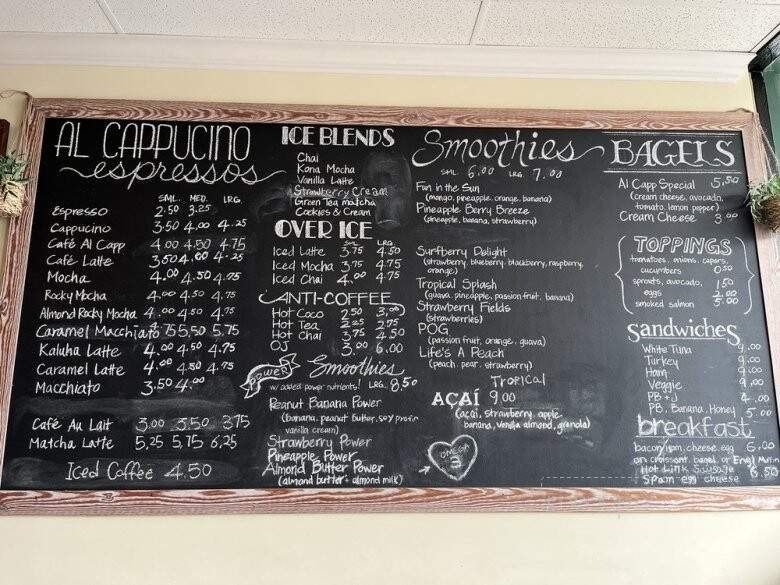 AL CAPPUCINO
espressos
SML. MED. LRG.
Espresso 2.50 3.25
Cappucino 3.50 4.00 4.25
Café Al Capp 4.00 4.50 4.75
Café Latte 3.50 4.00 4.25
Mocha 4.00 4.50 4.75
Rocky Mocha 4.00 4.50 4.75
Almond Rocky Mocha 4.00 4.50 4.75
Caramel Macchiato 5.50 5.75
Kaluha Latte 4.00 4.50 4.75
Caramel Latte 4.00 4.50 4.75
Macchiato 3.50 4.00
Café Au Lait 3.00 3.50 3.75
Matcha Latte 5.25 5.75 6.25
Iced Coffee 4.50
ICE BLENDS
Chai
Kona Mocha
Vanilla Latte
Strawberry Cream
Green Tea matcha
Cookies & Cream
OVER ICE
SML LRG
Iced Latte 3.75 4.50
Iced Mocha 3.75 4.75
Iced Chai 4.00 4.75
ANTI-COFFEE
Hot Coco 2.50 3.00
Hot Tea 2.25 2.75
Hot Chai 3.75 4.50
OJ 3.00 6.00
POWER Smoothies
w/ added power nutrients! LRG. 8.50
Peanut Banana Power
(banana, peanut butter, soy protein
vanilla cream)
Strawberry Power
Pineapple Power
Almond Butter Power
(almond butter + almond milk)
Smoothies
SML 6.00 LRG. 7.00
Fun in the Sun
(mango, pineapple, orange, banana)
Pineapple Berry Breeze
(pineapple, banana, strawberry)
Surfberry Delight
(strawberry, blueberry, blackberry, raspberry,
orange)
Tropical Splash
(guava, pineapple, passion fruit, banana)
Strawberry Fields
(strawberries)
POG
(passion fruit, orange, guava)
Life's A Peach
(peach, pear, strawberry)
Tropical
AÇAÍ 9.00
(acai, strawberry, apple
banana, vanilla almond, granola)
3
BAGELS
Al Capp Special 5.50
(cream cheese, avocado,
tomato, lemon pepper)
Cream Cheese 3.00
TOPPINGS
tomatoes, onions, capers,
cucumbers 0.50
sprouts, avocado, 1.50
eggs 2.00
smoked salmon 5.00
Sandwiches
White Tuna 9.00
Turkey 9.00
Ham 9.00
Veggie 9.00
PB + J 4.00
PB, Banana, Honey 5.00
breakfast
bacon, ham, cheese, egg 6.00
on croissant, bagel, or Engl Muffin
Hot Link Sausage 6.50
Spam egg cheese